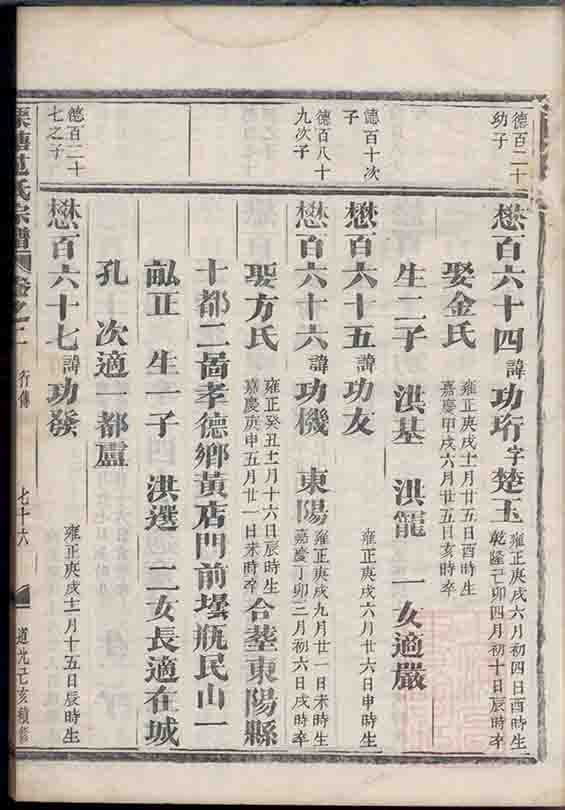 德百二十
幼子
懋百六十四諱功珩字楚玉
雍正庚戌六月初四日酉時生
乾隆己卯四月初十日辰時卒
娶金氏
雍正庚戌十一月廿五日酉時生
嘉慶甲戌六月廿五日亥時卒
生二子 洪基 洪寵 一女適嚴
德百十次
子
懋百六十五諱功友
雍正庚戌六月廿六日申時生
德百八十
九次子
懋百六十六諱功機 東陽
雍正庚戌九月廿一日未時生
嘉慶丁卯三月初六日戌時卒
娶方氏
雍正癸丑十一月十六日辰時生
嘉慶庚申五月廿一日未時卒
合塟東陽縣
十都二啚孝德鄉黃店門前壜瓶民山一
畆正 生一子 洪選 二女長適在城
孔 次適一都盧
德百二十
七之子
懋百六十七諱功發
雍正庚戌十一月十五日辰時生
氏宗譜
卷之二
行傳
七十六
道光己亥續修